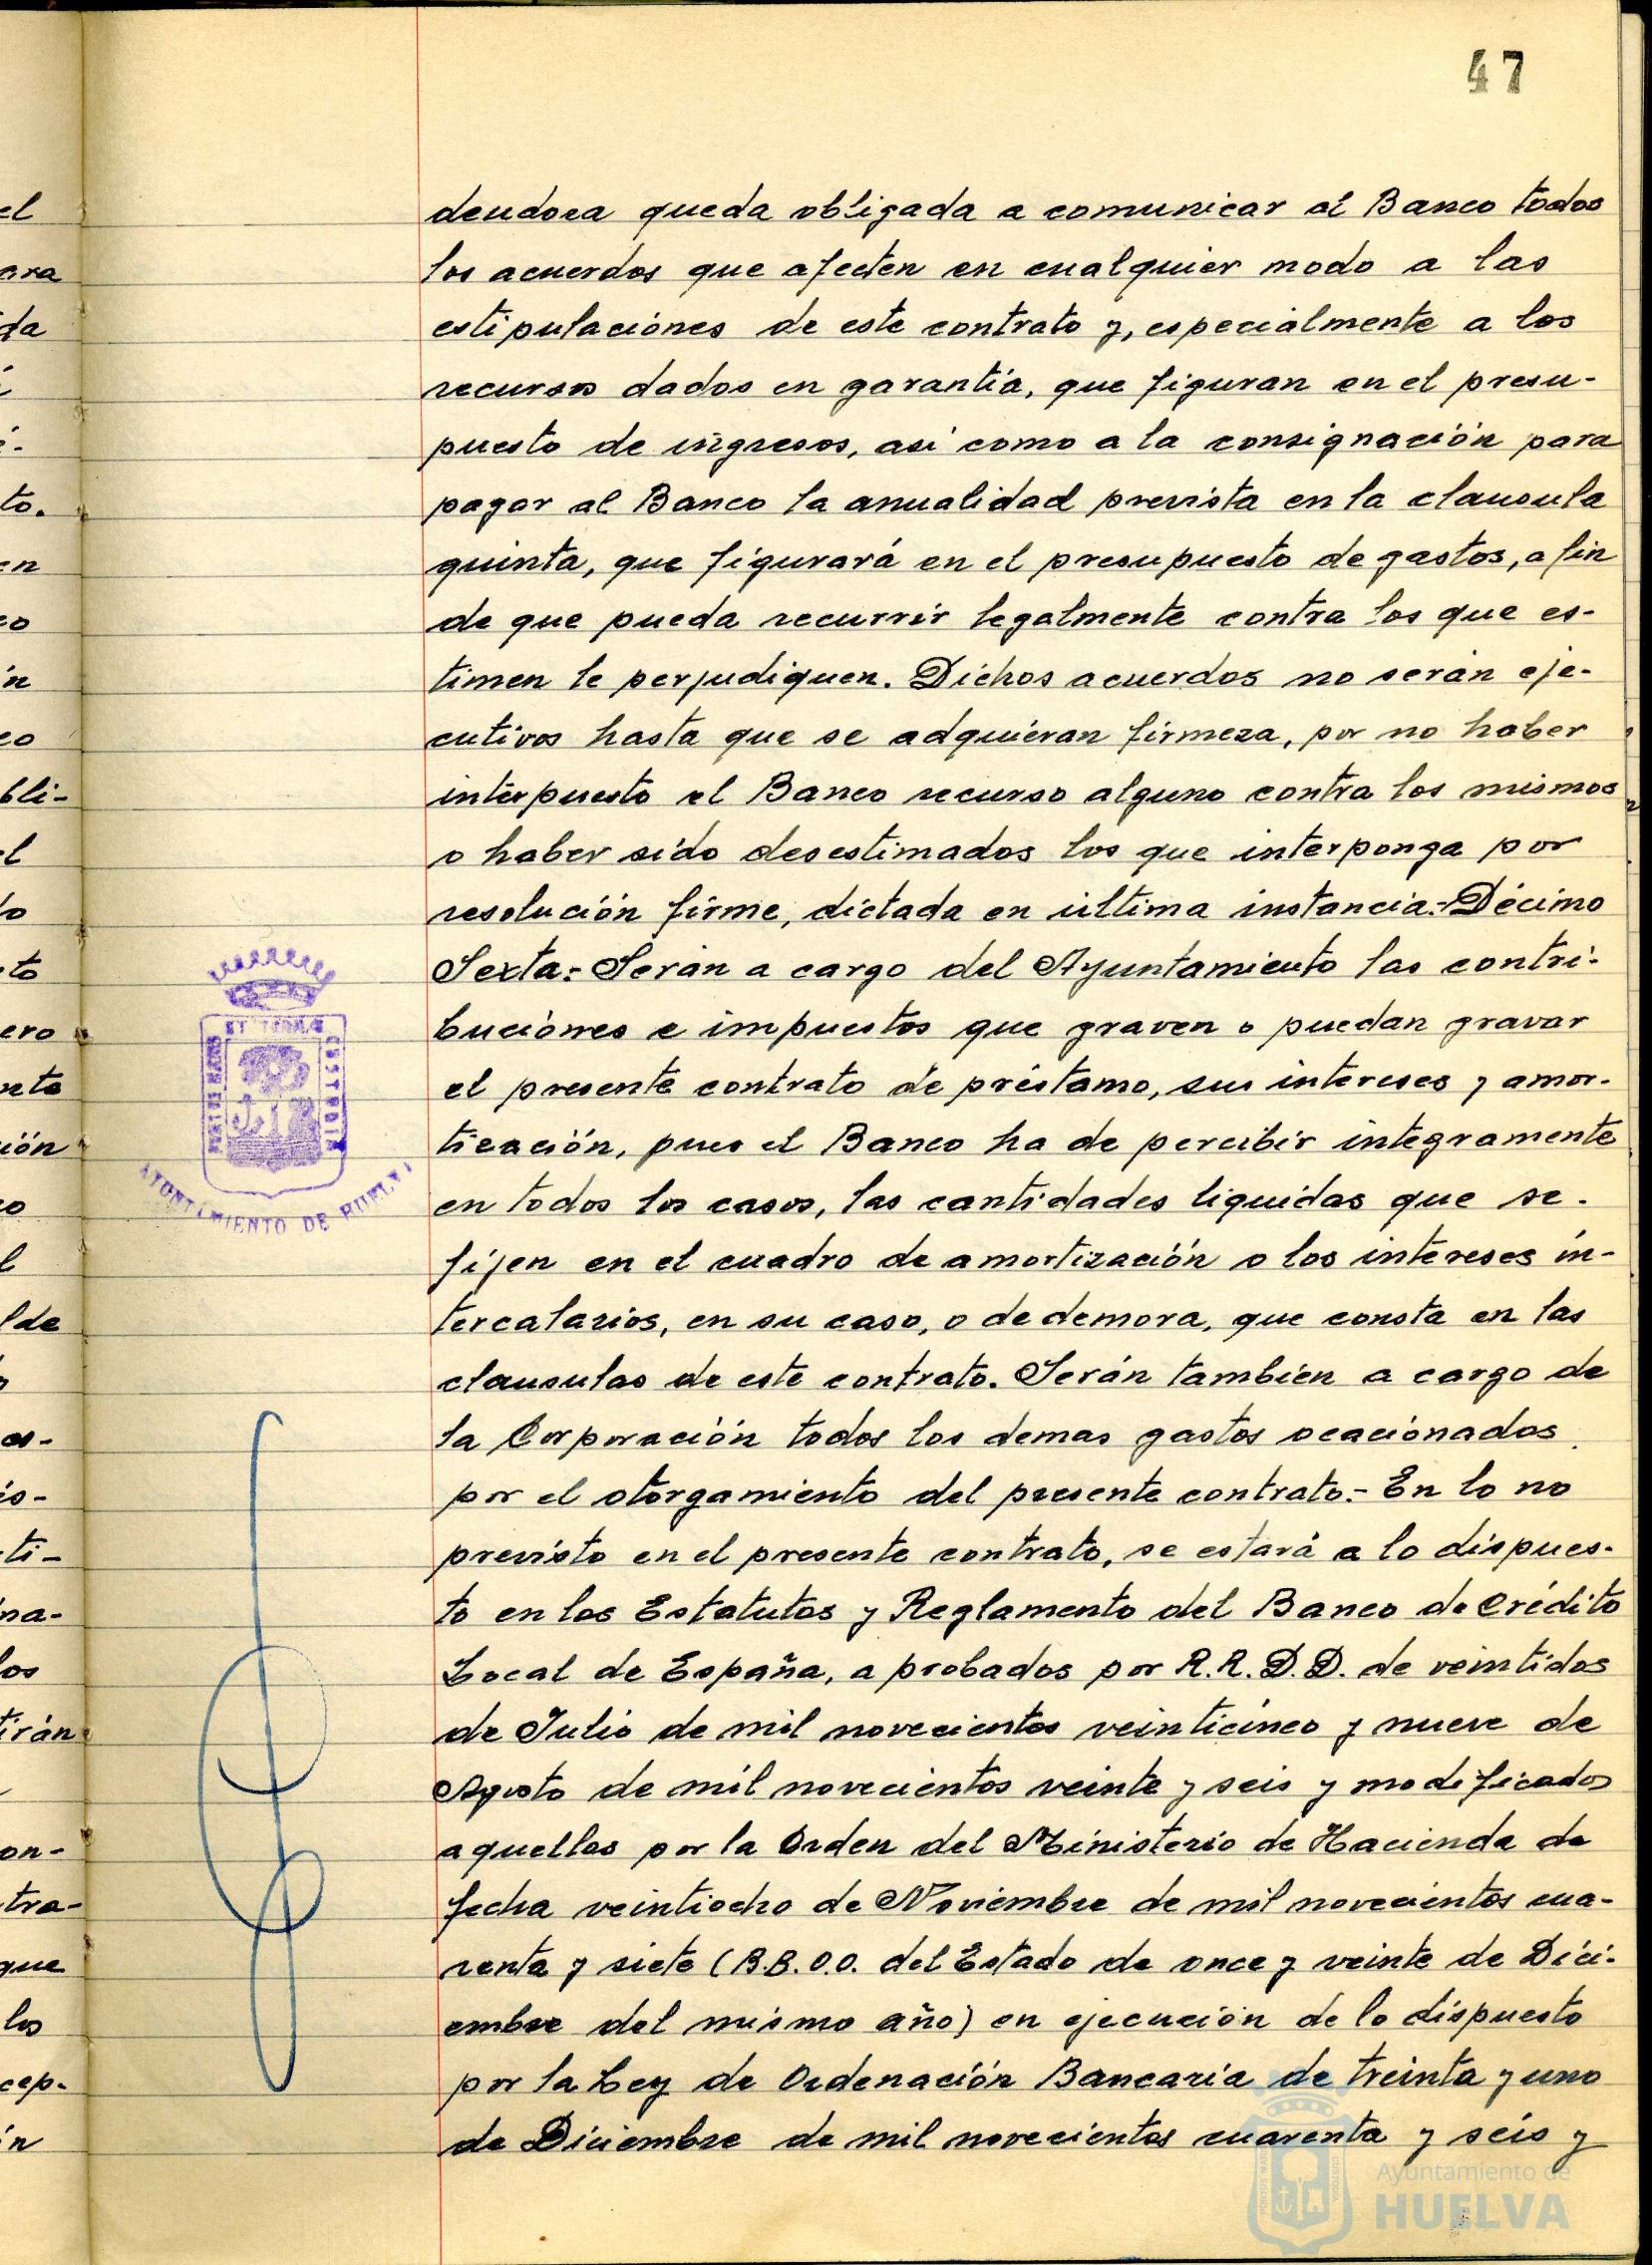 47
deudora queda obligada a comunicar al Banco todos
los acuerdos que afecten en cualquier modo a las
estipulaciones de este contrato y, especialmente a los
recursos dados en garantía, que figuran en el presu-
puesto de ingresos, asi como a la consignación para
pagar al Banco la anualidad prevista en la clausula
quinta, que figurará en el presupuesto de gastos, a fin
de que pueda recurrir legalmente contra los que es-
timen le perjudiquen. Dichos acuerdos no serán eje-
cutivos hasta que se adquieran firmeza, por no haber
interpuesto el Banco recurso alguno contra los mismos
o haber sido desestimados los que interponga por
resolución firme, dictada en última instancia.-Décimo
Sexta.- Serán a cargo del Ayuntamiento las contri-
buciones e impuestos que graven o puedan gravar
el presente contrato de préstamo, sus intereses y amor-
tización, pues el Banco ha de percibir integramente
en todos los casos, las cantidades liquidas que se.
fijen en el cuadro de amortización o los intereses in-
tercalarios, en su caso, o de demora, que consta en las
clausulas de este contrato. Serán tambien a cargo de
la Corporación todos los demas gastos ocacionados
por el otorgamiento del presente contrato.- En lo no
previsto en el presente contrato, se estará a lo dispues-
to en los Estatutos y Reglamento del Banco de Crédito
Local de España, aprobados por R.R.D.D. de veintidos
de Julio de mil novecientos veinticinco y nueve de
Agosto de mil novecientos veinte y seis y modificados
aquellos por la Orden del Ministerio de Hacienda de
fecha veintiocho de Noviembre de mil novecientos cua-
renta y siete (B.B.O.O. del Estado de once y veinte de Dici-
embre del mismo año) en ejecución de lo dispuesto
por la Ley de Ordenación Bancaria de treinta y uno
de Diciembre de mil novecientos cuarenta y seis y
AYUNTAMIENTO DE HUELVA
Ayuntamiento de
HUELVA